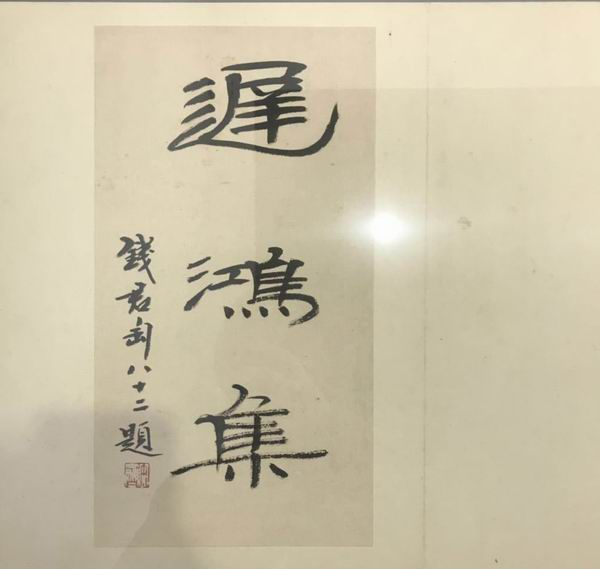 遲鴻集
錢君匋八十二題